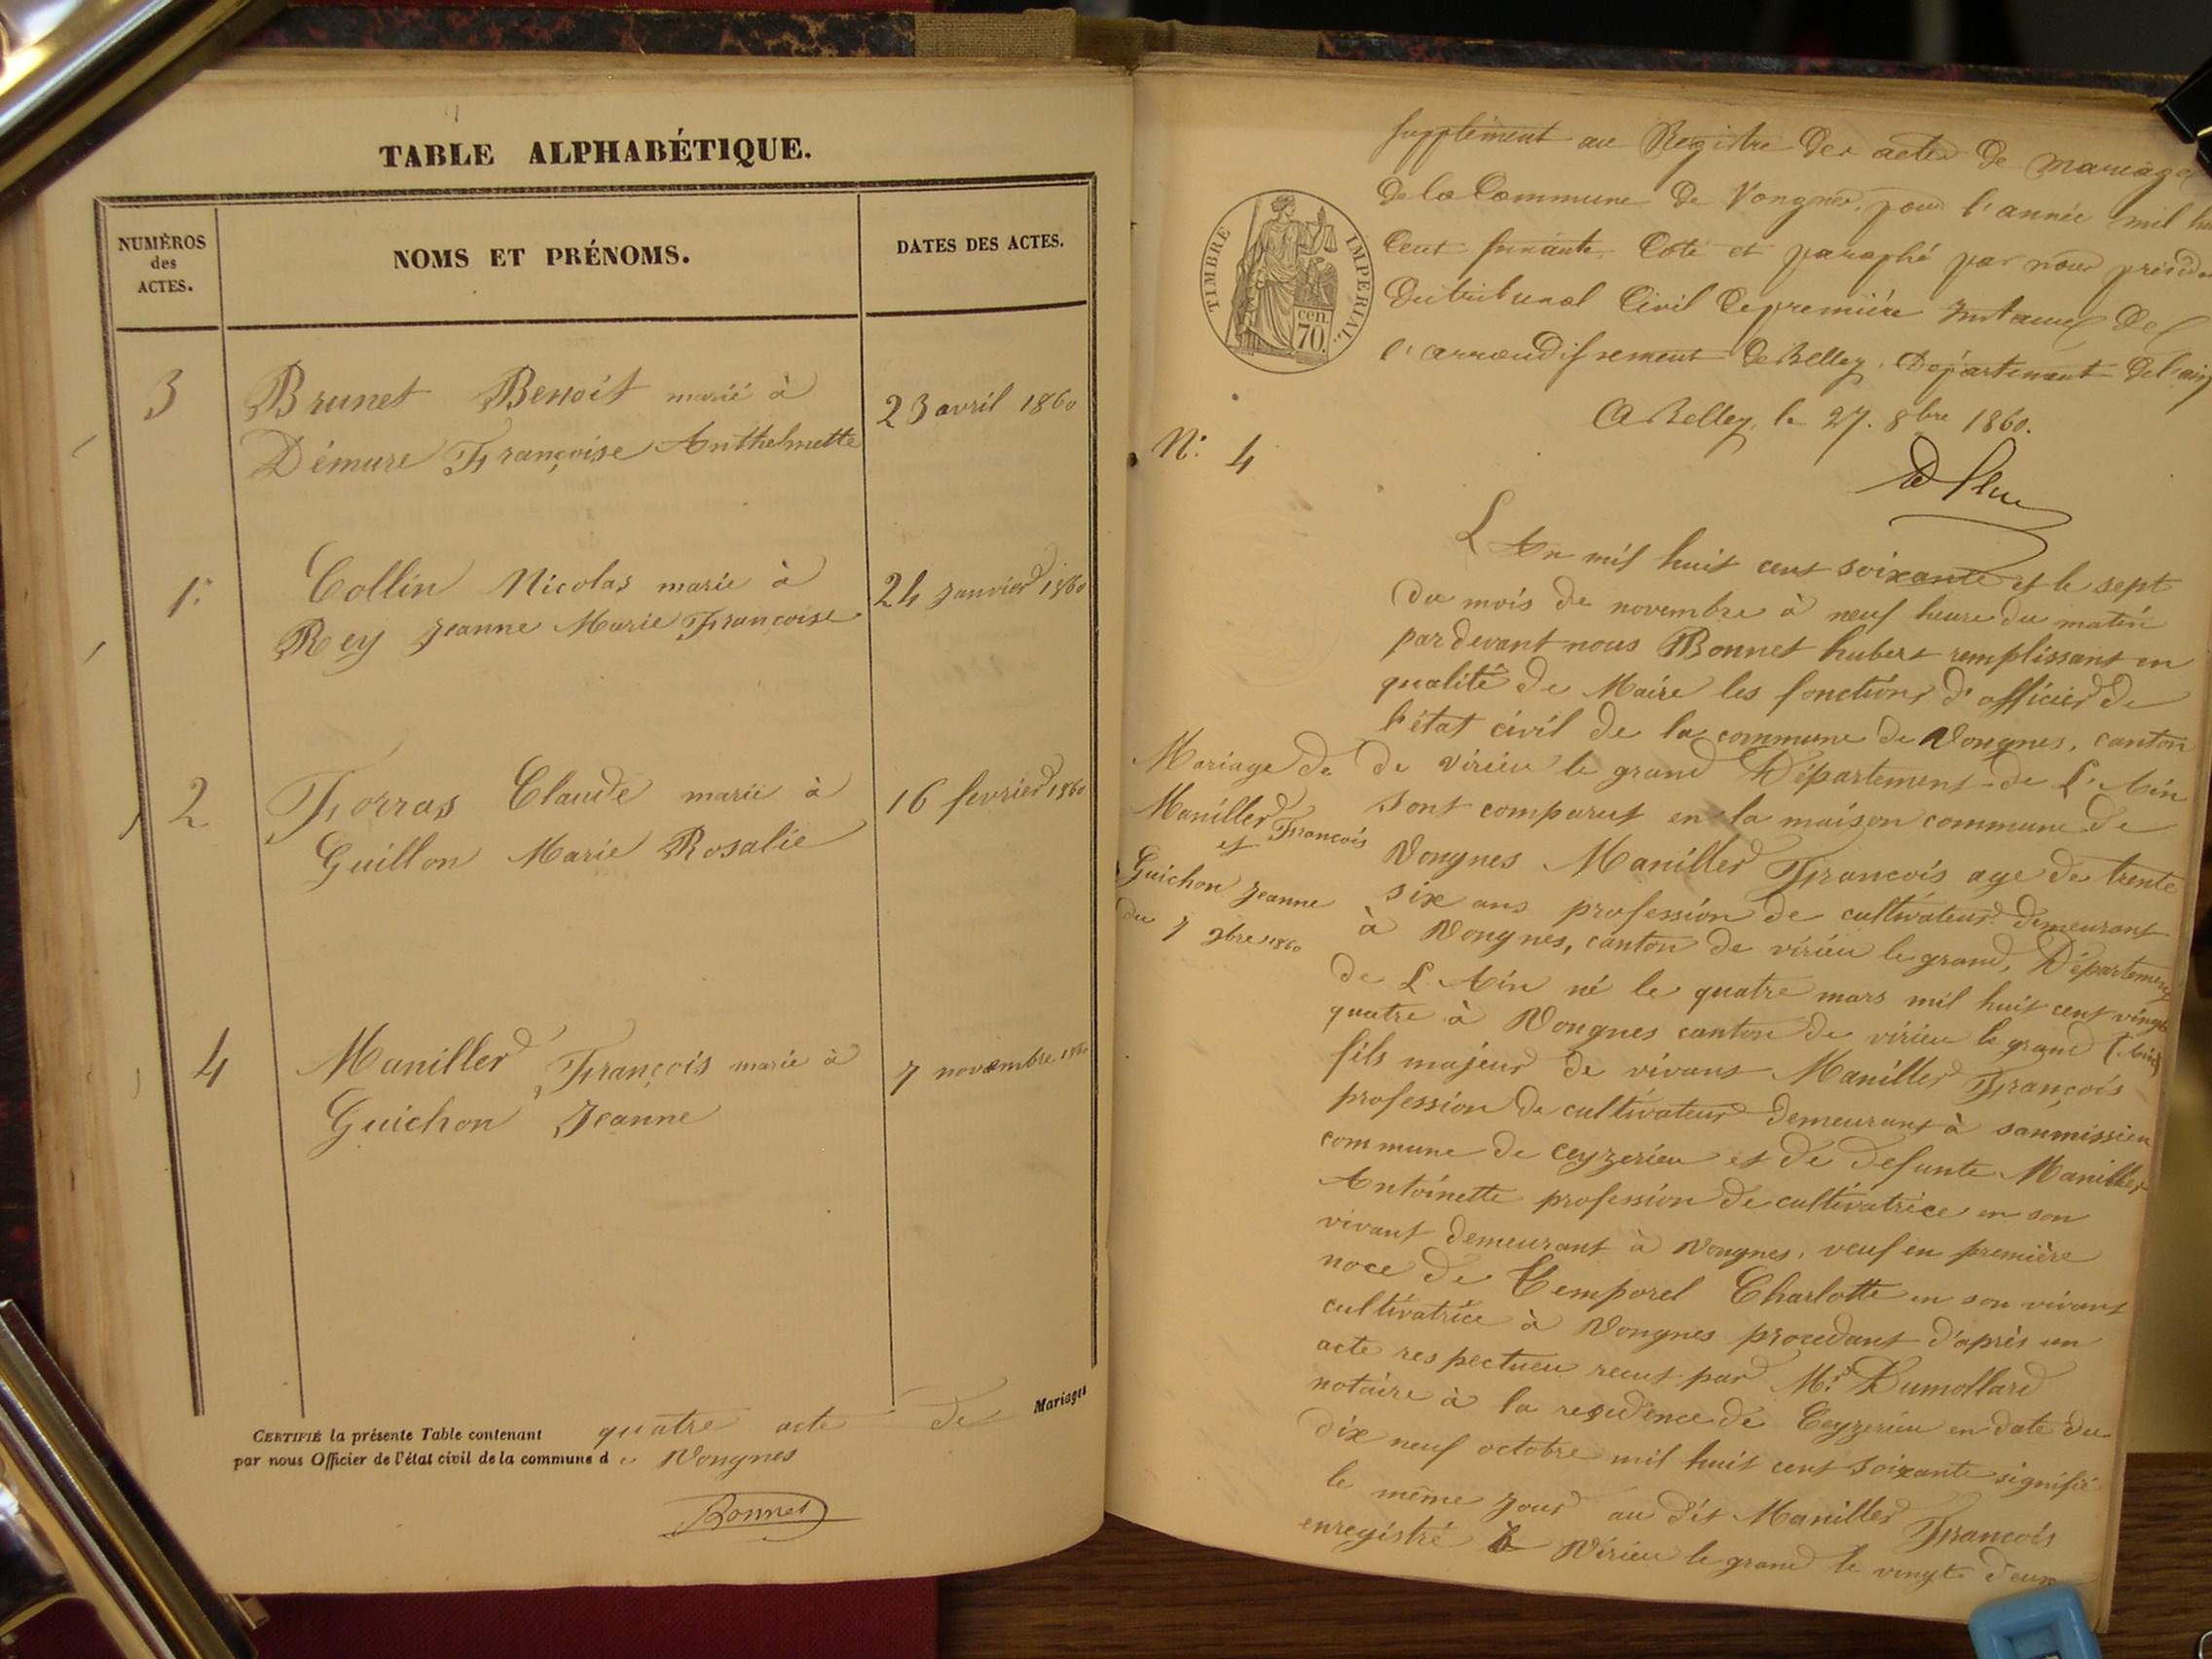 TABLE ALPHABÉTIQUE.
NUMÉROS
des
ACTES.
NOMS ET PRÉNOMS.
DATES DES ACTES.
3
Brunet Benoit marié à
23 avril 1860
Démure Françoise Anthelmette
1.
Collin Nicolas marie à
24 janvier 1860
Rey jeanne Marie Francoise
2
Forras Claude marie à
16 fevrier 1860
Guillon Marie Rosalie
4
Maniller François marie à
7 novembre 1860
Guichon Jeanne
CERTIFIÉ la présente Table contenant quatre acte de Mariages
par nous Officier de l'état civil de la commune de Vongnes
Bonnet
TIMBRE IMPERIAL.
70. cen.
supplément au Registre des actes de mariage
de la Commune de Vongnes, pour l'année mil
cent soixante, Coté et paraphé par nous
du tribunal Civil de première Instance de
l'arrondissement de Belley, Département de l'ain
A Belley, le 27. 8bre 1860.
N. 4
L An mil huit cent soixante et le sept
du mois de novembre à neuf heure du matin
pardevant nous Bonnet hubert remplissant en
qualité de Maire les fonctions d'officier de
l'état civil de la commune de Vongnes, canton
de virieu le grand Département de L'Ain
sont comparut en la maison commune de
Vongnes Maniller Francois age de trente
six ans profession de cultivateur demeurant
à Vongnes, canton de virieu le grand, Département
de L'Ain né le quatre mars mil huit cent vingt
quatre à Vongnes canton de virieu le grand (Ain)
fils majeur de vivant Maniller François
profession de cultivateur demeurant à sanmissieu
commune de Ceyzerieu et de defunte Maniller
Antoinette profession de cultivatrice en son
vivant demeurant à Vongnes, veuf en première
noce de Temporel Charlotte en son vivant
cultivatrice à Vongnes procedant d'après un
acte respectueu recut par Mr. Dumollard
notaire à la residence de Ceyzerieu en date du
dix neuf octobre mil huit cent soixante signifié
le même jour au dit Maniller Francois
enregistré à Virieu le grand le vingt deux
Mariage de
Maniller Francois
et
Guichon Jeanne
du 7 9bre 1860